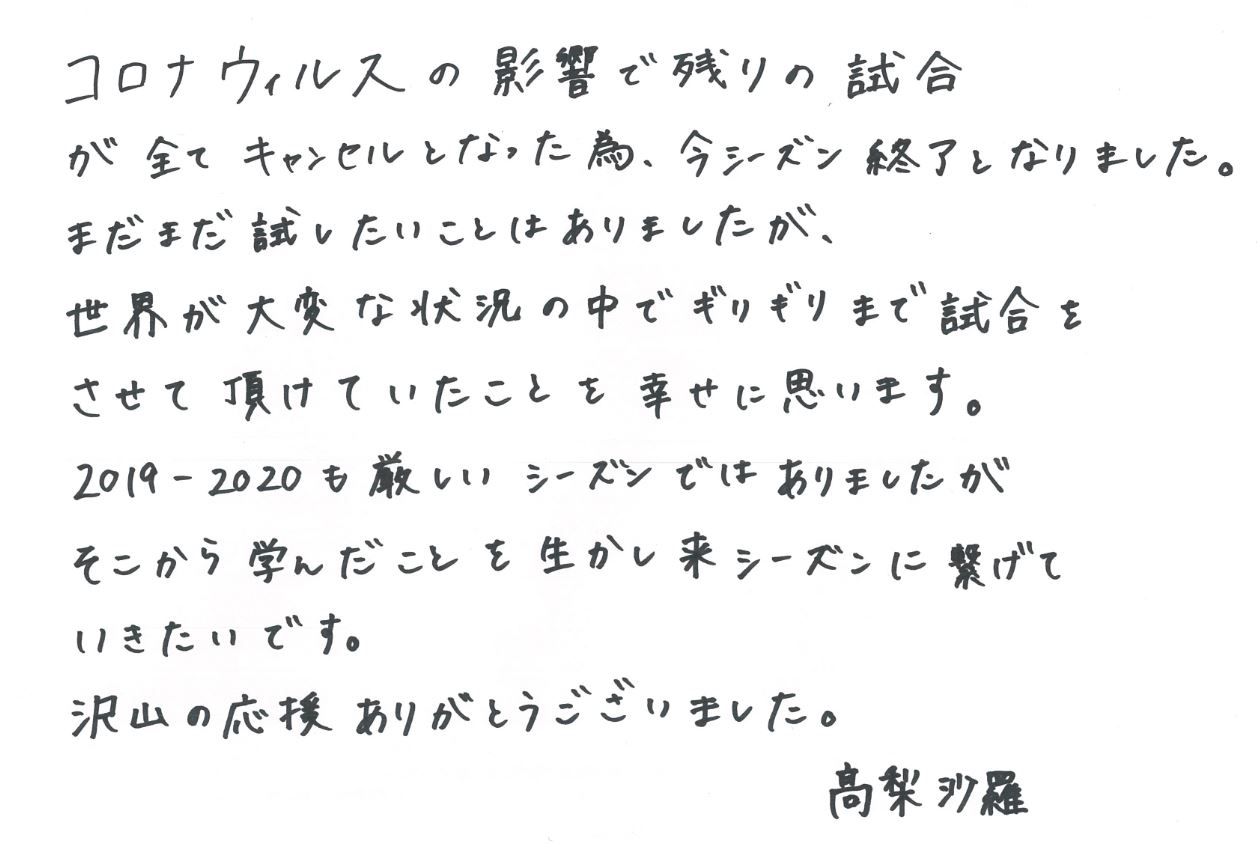 コロナウィルスの影響で残りの試合
が全てキャンセルとなった為、今シーズン終了となりました。
まだまだ試したいことはありましたが、
世界が大変な状況の中でギリギリまで試合を
させて頂けていたことを幸せに思います。
2019-2020も厳しいシーズンではありましたが
そこから学んだことを生かし来シーズンに繋げて
いきたいです。
沢山の応援ありがとうございました。
高梨沙羅